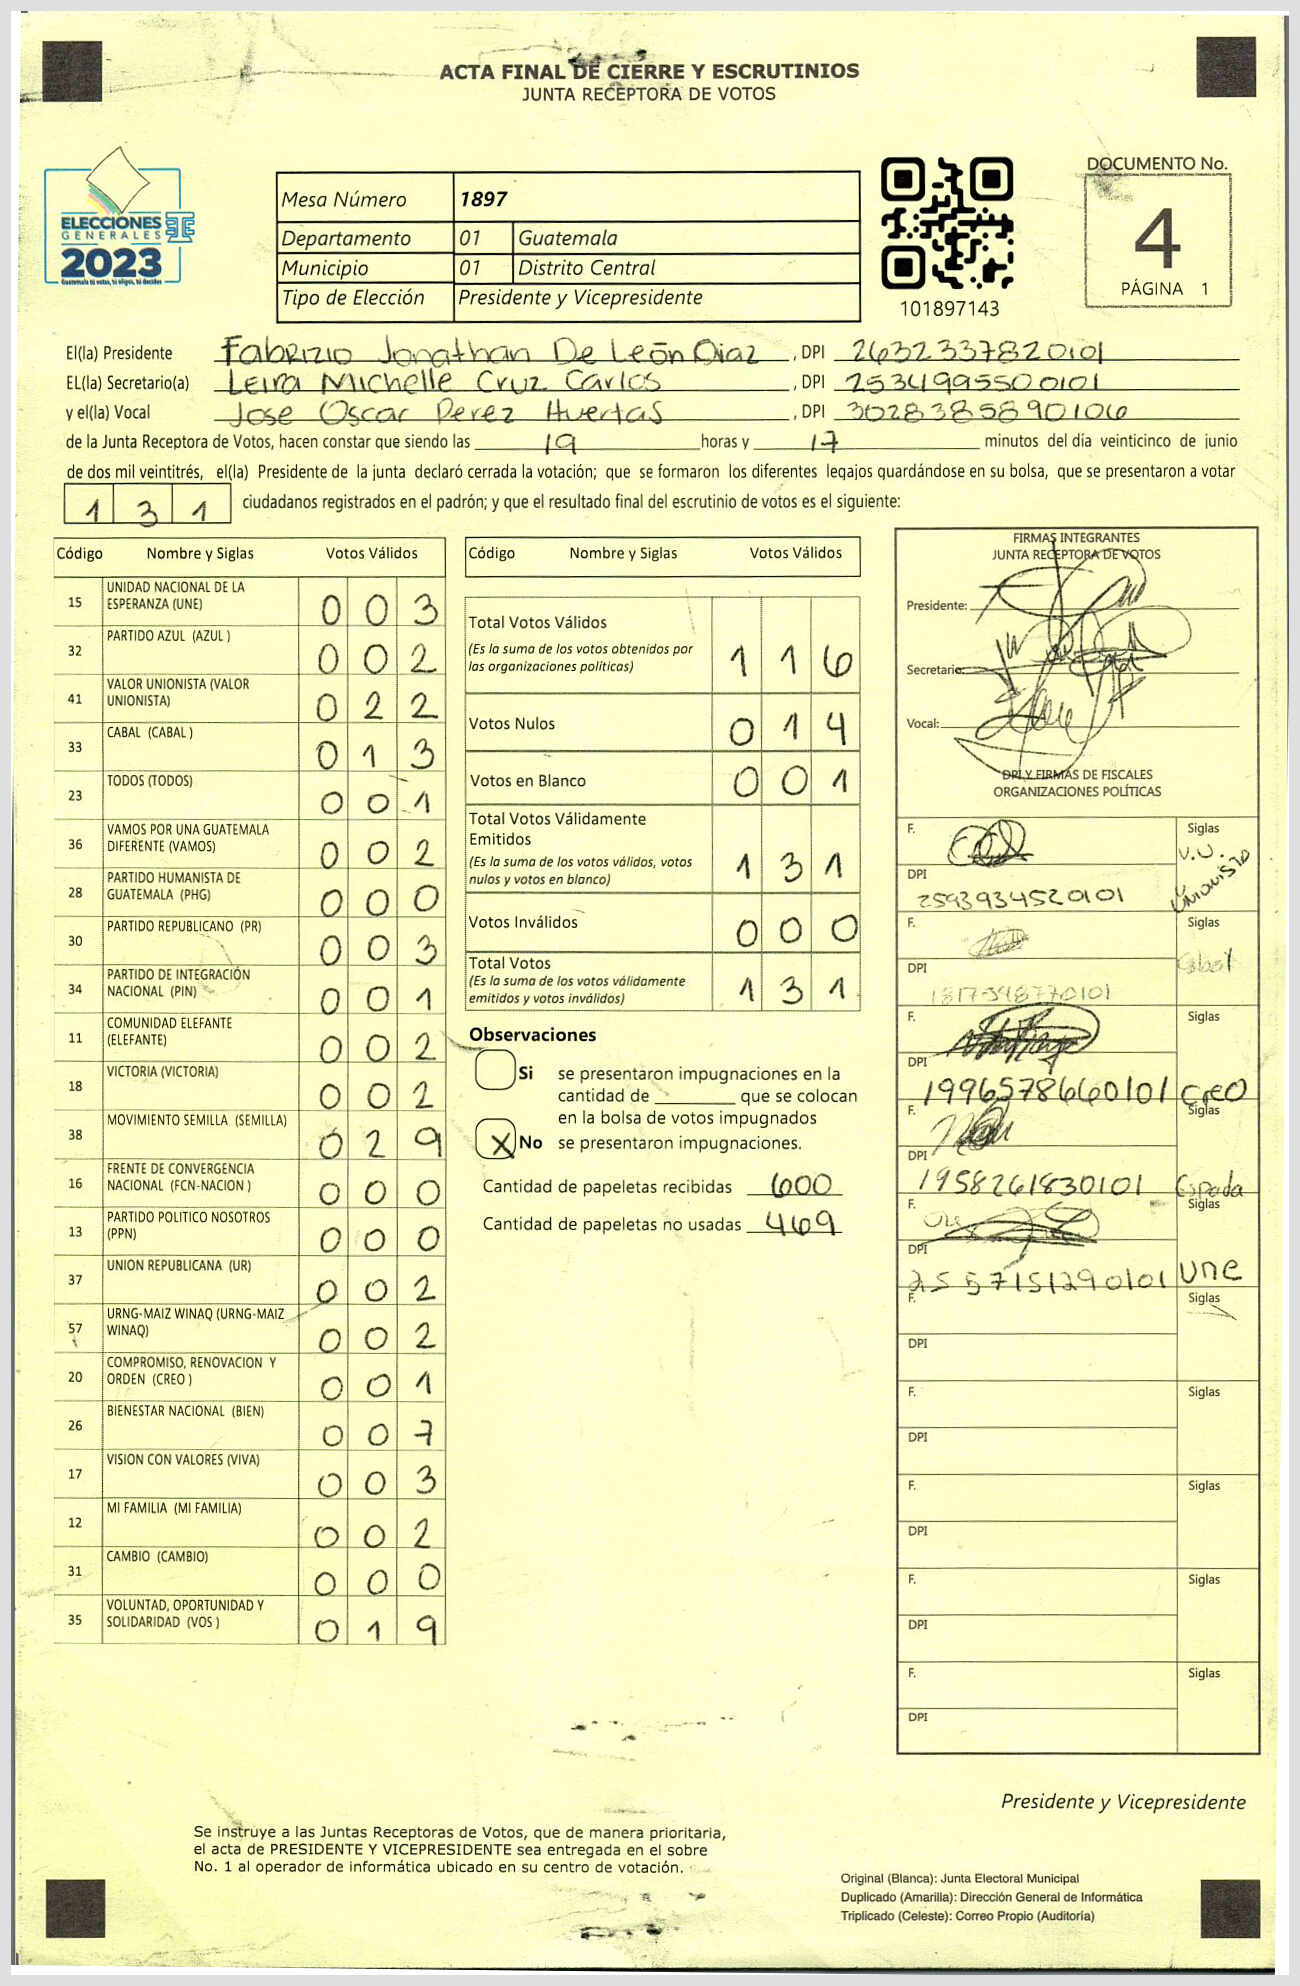 ACTA FINAL DE CIERRE Y ESCRUTINIOS
JUNTA RECEPTORA DE VOTOS
ELECCIONES
GENERALES
2023
Guatemala tú votas, tú eliges, tú decides
Mesa Número 1897
Departamento 01 Guatemala
Municipio 01 Distrito Central
Tipo de Elección Presidente y Vicepresidente
101897143
DOCUMENTO No.
4
PÁGINA 1
El(la) Presidente Fabrizio Jonathan De León Diaz , DPI 2632337820101
EL(la) Secretario(a) Leira Michelle Cruz Carlos , DPI 2534995500101
y el(la) Vocal Jose Oscar Perez Huertas , DPI 3028385890106
de la Junta Receptora de Votos, hacen constar que siendo las 19 horas y 17 minutos del día veinticinco de junio
de dos mil veintitrés, el(la) Presidente de la junta declaró cerrada la votación; que se formaron los diferentes legajos guardándose en su bolsa, que se presentaron a votar
131 ciudadanos registrados en el padrón; y que el resultado final del escrutinio de votos es el siguiente:
Código Nombre y Siglas Votos Válidos
15 UNIDAD NACIONAL DE LA
ESPERANZA (UNE) 003
32 PARTIDO AZUL (AZUL ) 002
41 VALOR UNIONISTA (VALOR
UNIONISTA) 022
33 CABAL (CABAL ) 013
23 TODOS (TODOS) 001
36 VAMOS POR UNA GUATEMALA
DIFERENTE (VAMOS) 002
28 PARTIDO HUMANISTA DE
GUATEMALA (PHG) 000
30 PARTIDO REPUBLICANO (PR) 003
34 PARTIDO DE INTEGRACIÓN
NACIONAL (PIN) 001
11 COMUNIDAD ELEFANTE
(ELEFANTE) 002
18 VICTORIA (VICTORIA) 002
38 MOVIMIENTO SEMILLA (SEMILLA) 029
16 FRENTE DE CONVERGENCIA
NACIONAL (FCN-NACION ) 000
13 PARTIDO POLITICO NOSOTROS
(PPN) 000
37 UNION REPUBLICANA (UR) 002
57 URNG-MAIZ WINAQ (URNG-MAIZ
WINAQ) 002
20 COMPROMISO, RENOVACION Y
ORDEN (CREO ) 001
26 BIENESTAR NACIONAL (BIEN) 007
17 VISION CON VALORES (VIVA) 003
12 MI FAMILIA (MI FAMILIA) 002
31 CAMBIO (CAMBIO) 000
35 VOLUNTAD, OPORTUNIDAD Y
SOLIDARIDAD (VOS ) 019
Código Nombre y Siglas Votos Válidos
Total Votos Válidos
(Es la suma de los votos obtenidos por
las organizaciones políticas) 116
Votos Nulos 014
Votos en Blanco 001
Total Votos Válidamente
Emitidos
(Es la suma de los votos válidos, votos
nulos y votos en blanco) 131
Votos Inválidos 000
Total Votos
(Es la suma de los votos válidamente
emitidos y votos inválidos) 131
Observaciones
Si se presentaron impugnaciones en la
cantidad de ________ que se colocan
en la bolsa de votos impugnados
X No se presentaron impugnaciones.
Cantidad de papeletas recibidas 600
Cantidad de papeletas no usadas 469
FIRMAS INTEGRANTES
JUNTA RECEPTORA DE VOTOS
Presidente:
Secretario:
Vocal:
DPI Y FIRMAS DE FISCALES
ORGANIZACIONES POLÍTICAS
F. Siglas
V.U.
Unionista
DPI
2593934520101
F. Siglas
Cabal
DPI
F. Siglas
DPI
1996578660101 Creo
F. Siglas
DPI
1958261830101
F. Siglas
DPI
2557151290101 Une
F. Siglas
DPI
F. Siglas
DPI
F. Siglas
DPI
F. Siglas
DPI
F. Siglas
DPI
Presidente y Vicepresidente
Se instruye a las Juntas Receptoras de Votos, que de manera prioritaria,
el acta de PRESIDENTE Y VICEPRESIDENTE sea entregada en el sobre
No. 1 al operador de informática ubicado en su centro de votación.
Original (Blanca): Junta Electoral Municipal
Duplicado (Amarilla): Dirección General de Informática
Triplicado (Celeste): Correo Propio (Auditoría)